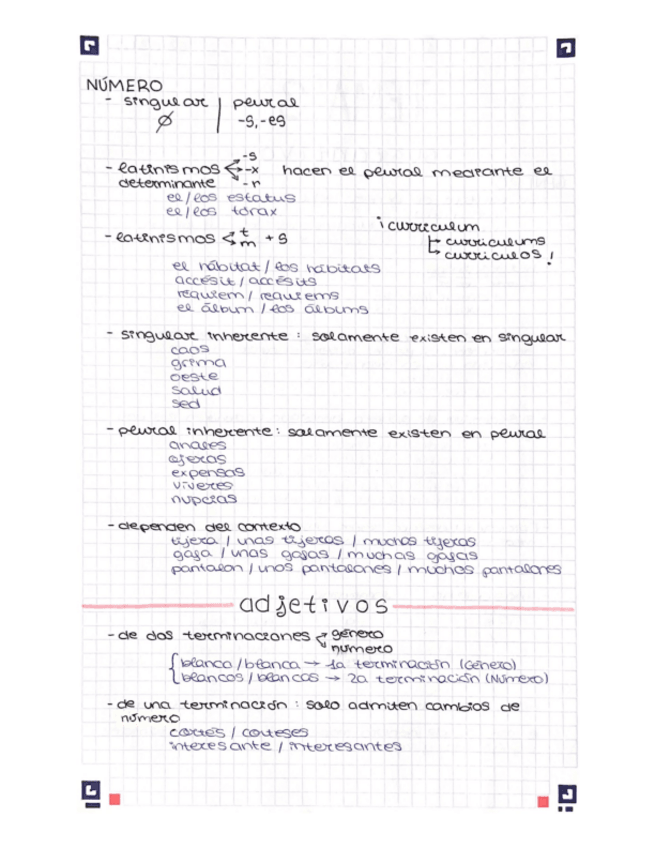 NÚMERO
- singular | plural
∅ | -s, -es
-s
- latinismos -x hacen el plural mediante el
determinante -r
el/los estatus
el/los tórax
- latinismos t m + s
¡curriculum
curriculums
curriculos!
el hábitat / los hábitats
accésit / accésits
requiem / requiems
el álbum / los álbums
- singular inherente : solamente existen en singular
caos
grima
oeste
salud
sed
- plural inherente : solamente existen en plural
anales
ojeras
expensas
víveres
nupcias
- dependen del contexto
tijera / unas tijeras / muchas tijeras
gafa / unas gafas / muchas gafas
pantalon / unos pantalones / muchos pantalones
adjetivos
- de dos terminaciones género
número
blanco/blanca → 1a terminación (Género)
blancos/blancas → 2a terminación (Número)
- de una terminación : solo admiten cambios de
número
cortés / corteses
interesante / interesantes